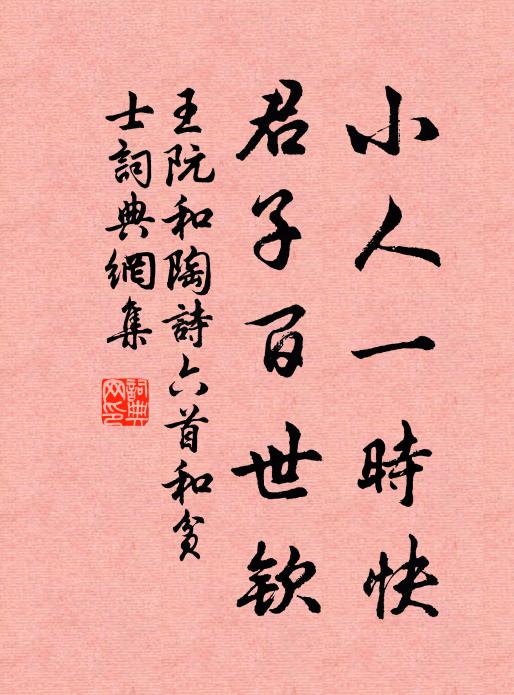 小人一時快
君子百世欽
王阮和陶詩六首和貧
士詞典網集
詞典網印